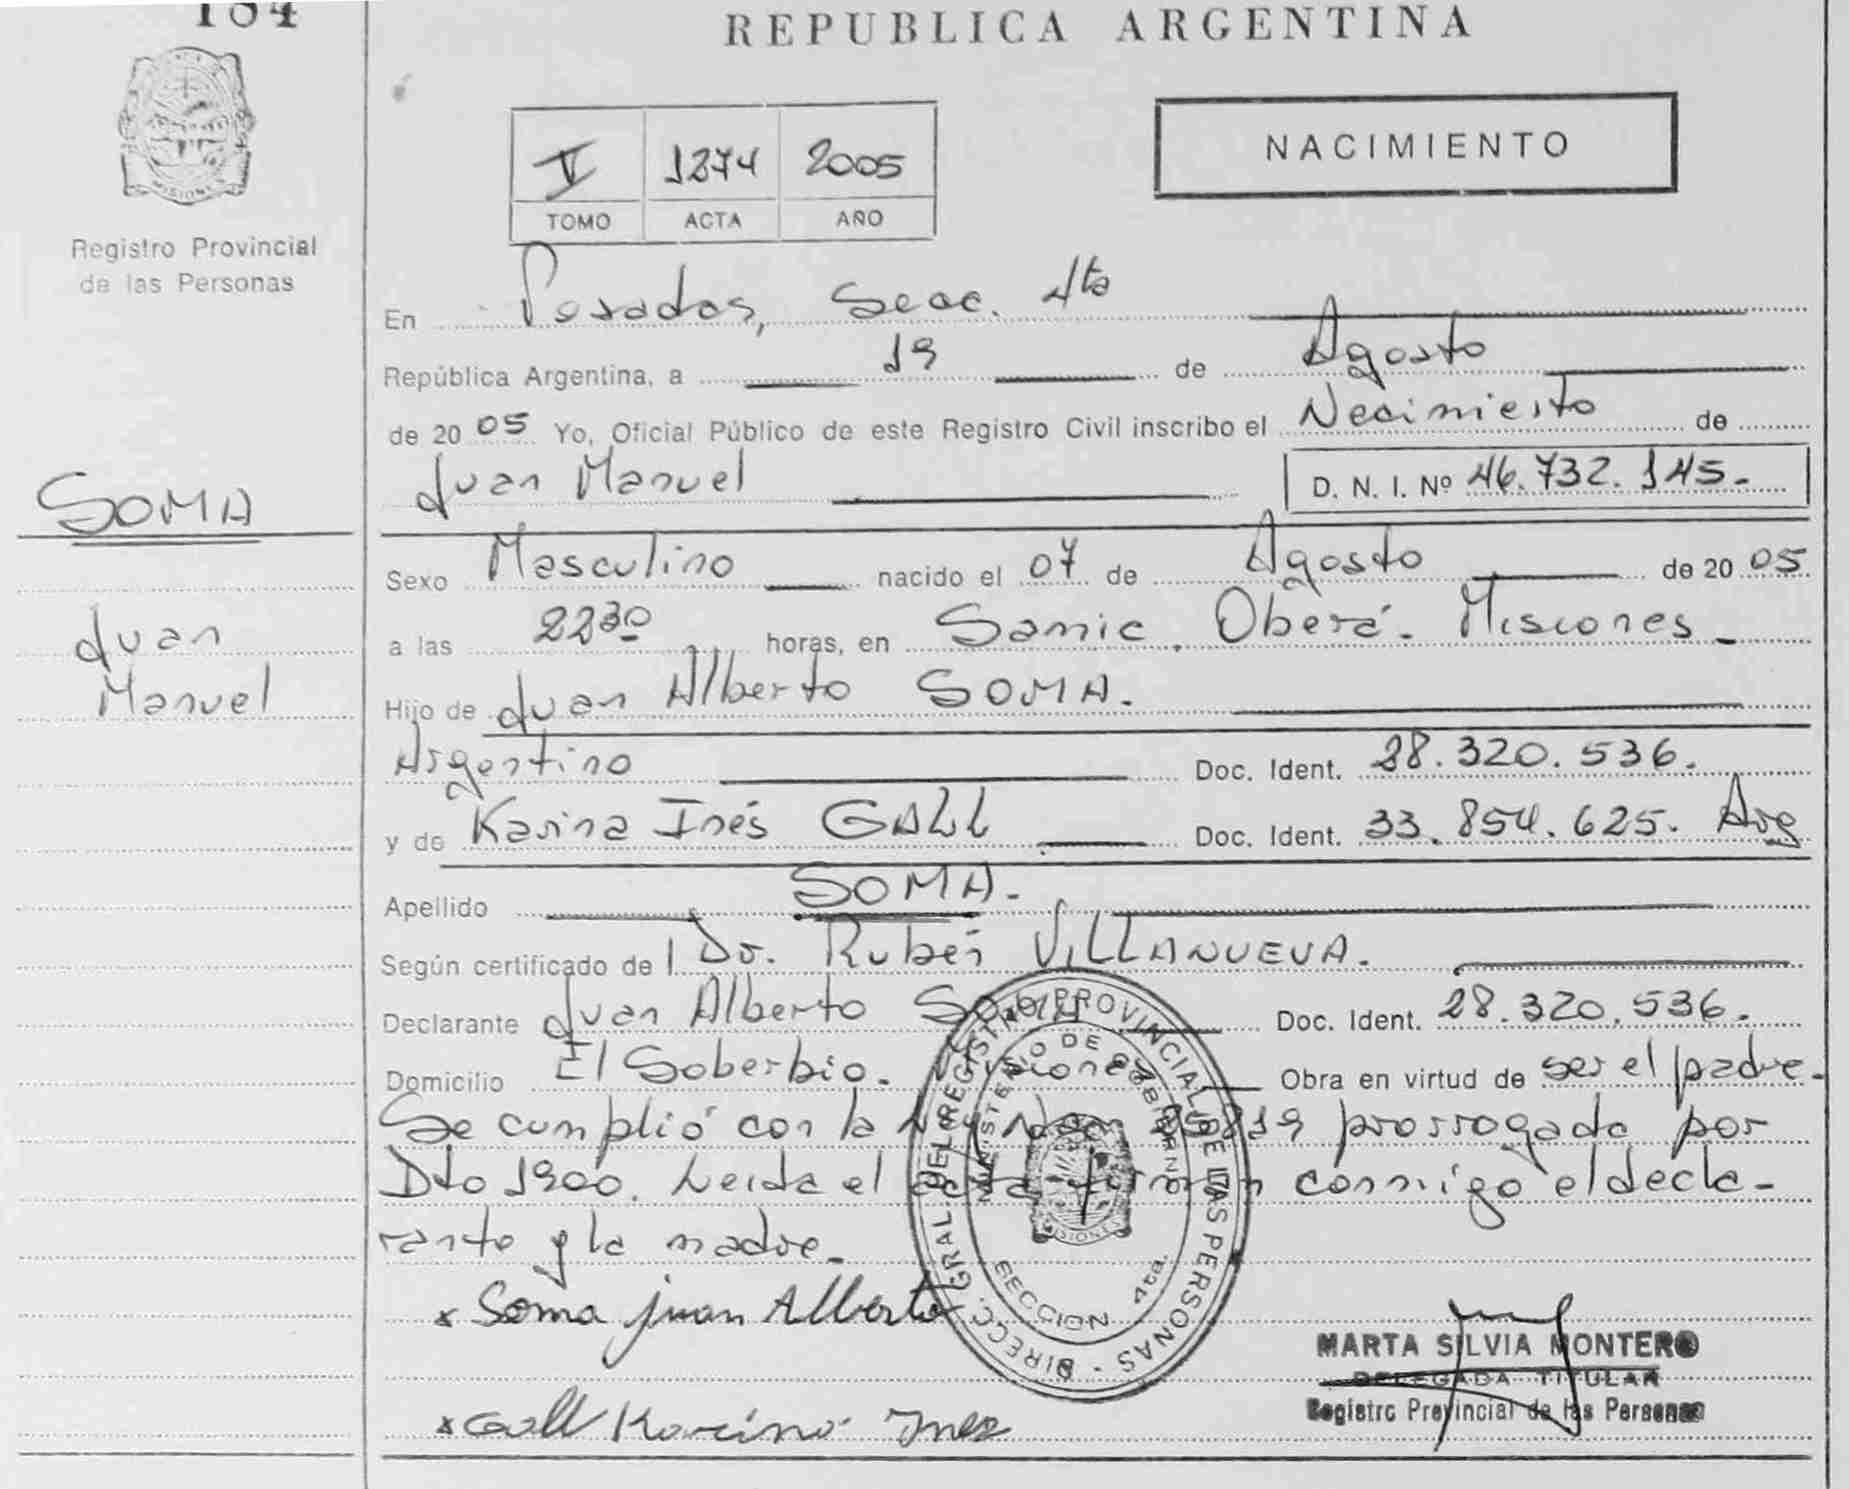 184
REPUBLICA ARGENTINA
MISIONES
Registro Provincial
de las Personas
V 1274 2005
TOMO ACTA AÑO
NACIMIENTO
En Posadas, Secc. 4ta
República Argentina, a 19 de Agosto
de 2005 Yo, Oficial Público de este Registro Civil inscribo el Nacimiento de
Juan Manuel D. N. I. Nº 46.732.145.-
SOMA
Juan
Manuel
Sexo Masculino nacido el 07 de Agosto de 2005
a las 2230 horas, en Samic. Oberá. Misiones-
Hijo de Juan Alberto SOMA.
Argentino Doc. Ident. 28.320.536.
y de Karina Inés GALL Doc. Ident. 33.854.625. Arg
Apellido SOMA.-
Según certificado de l Dr. Rubén VILLANUEVA.
Declarante Juan Alberto SOMA Doc. Ident. 28.320.536.
Domicilio El Soberbio. Misiones Obra en virtud de ser el padre.
Se cumplió con la Ley 25819 prorrogada por
Dto 1900. Leida el acta firman conmigo el decla-
rante y la madre-
x Soma juan Alberto
x Gall Karina Ines
DIRECC. GRAL. DEL REGISTRO PROVINCIAL DE LAS PERSONAS -
MINISTERIO DE GOBIERNO
MISIONES
SECCION 4ta.
MARTA SILVIA MONTERO
DELEGADA TITULAR
Registro Provincial de las Personas